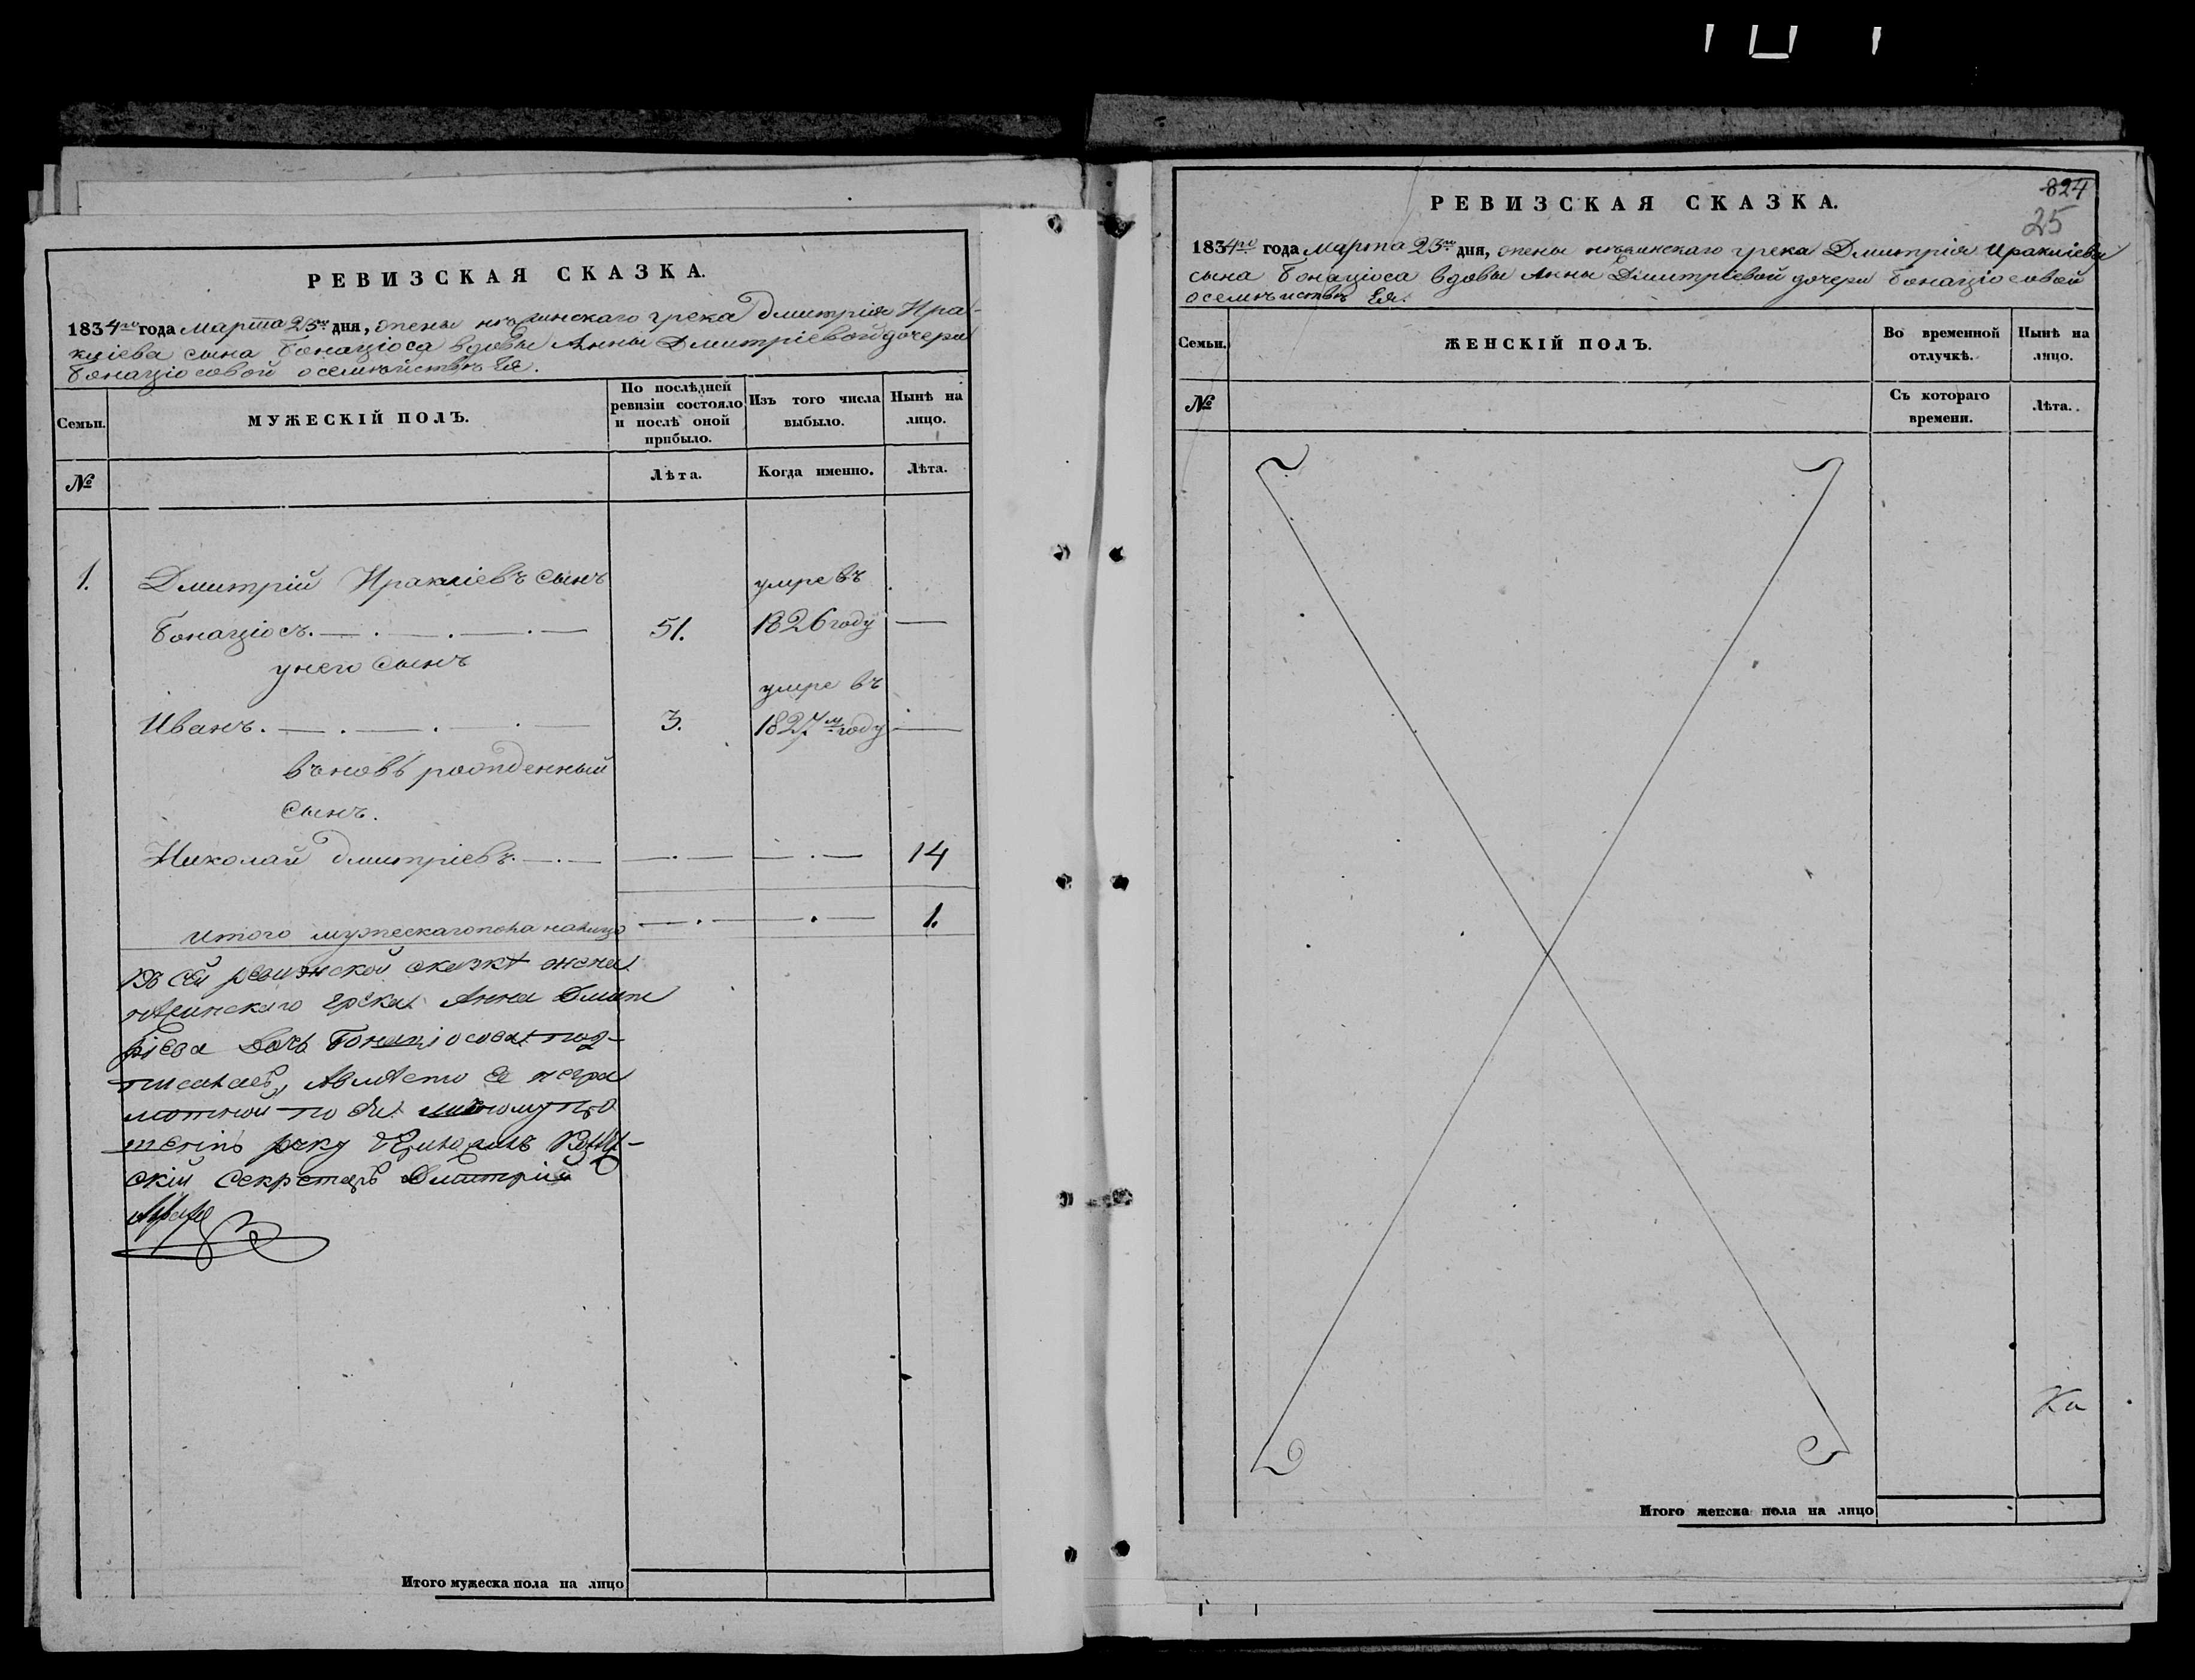 РЕВИЗСКАЯ СКАЗКА.
1834го года Марта 23го дня, жены нѣжинскаго грека Дмитрія Ира-
кліева сына Бонаціоса вдовы Анны Дмитріевой дочери
Бонаціосовой о семѣйствѣ Ея.
Семьи.
МУЖЕСКІЙ ПОЛЪ.
По послѣдней
ревизіи состояло
и послѣ оной
прибыло.
Изъ того числа
выбыло.
Нынѣ на
лицо.
№
Лѣта.
Когда именно.
Лѣта.
1.
Дмитрій Иракліевъ сынъ
умре въ
Бонаціосъ.
51.
1826 году
у него сынъ
умре въ
Иванъ.
3.
1827м году
въновь рожденный
сынъ.
Николай Дмитріевъ.
14
Итого мужескаго пола на лицо
1.
Въ сей ревизской сказкѣ жена
нѣжинскаго грека Анна Дмит
ріева дочь Бонаціосова под-
писалась, Авместо ее негра
мотной по ея
руку
скій секретарь Дмитрій
Итого мужеска пола на лицо
824
25
РЕВИЗСКАЯ СКАЗКА.
1834го года Марта 23го дня, жены нѣжинскаго грека Дмитрія Иракліева
сына Бонаціоса вдовы Анны Дмитріевой дочери Бонаціосовой
о семѣйствѣ Ея.
Семьи.
ЖЕНСКІЙ ПОЛЪ.
Во временной
отлучкѣ.
Нынѣ на
лицо.
№
Съ котораго
времени.
Лѣта.
Ка
Итого женска пола на лицо